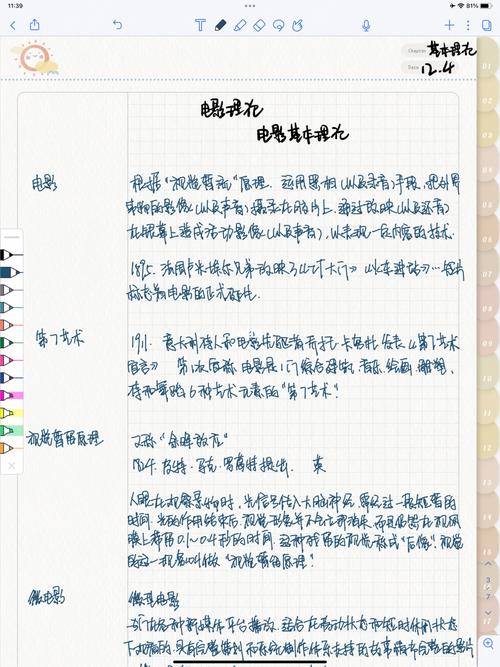 11:39
81%
Chapter 基本理论
Date 12.4
电影理论
电影基本理论
电影
根据“视觉暂留”原理，运用照相(以及录音)手段，把外界
事物的影像(以及声音)摄录在胶片上，通过放映(以及还音)
在银幕上造成活动影像(以及声音)，以表现一定内容的技术.
1895. 法国卢米埃尔兄弟放映了《工厂大门》《火车进站》…短片
标志着电影的正式诞生.
第7艺术
1911. 意大利诗人和电影先驱者乔托·卡努杜发表《第7艺术
宣言》 第1次宣称电影是1门综合建筑、音乐、绘画、雕塑、
诗和舞蹈6种艺术元素的“第7艺术”
视觉暂留原理
又称“余晖效应”
1824. 皮特·马克·罗葛特提出. 英
人眼在观察景物时，光信号传入大脑神经，需经过一段短暂的
时间，光的作用结束后，视觉形象并不会立即消失，而且停留在视网
膜上停留0.1～0.4秒的时间，这种残留的视觉称成“后像”，视觉
的这一现象叫做“视觉暂留原理”
微电影
微型电影
新媒体平台播放、适合在移动状态和短时休闲状态
下观看的、具有完整策划和系统制作体系支持的故事情节完整的影片
01
02
3
7
17